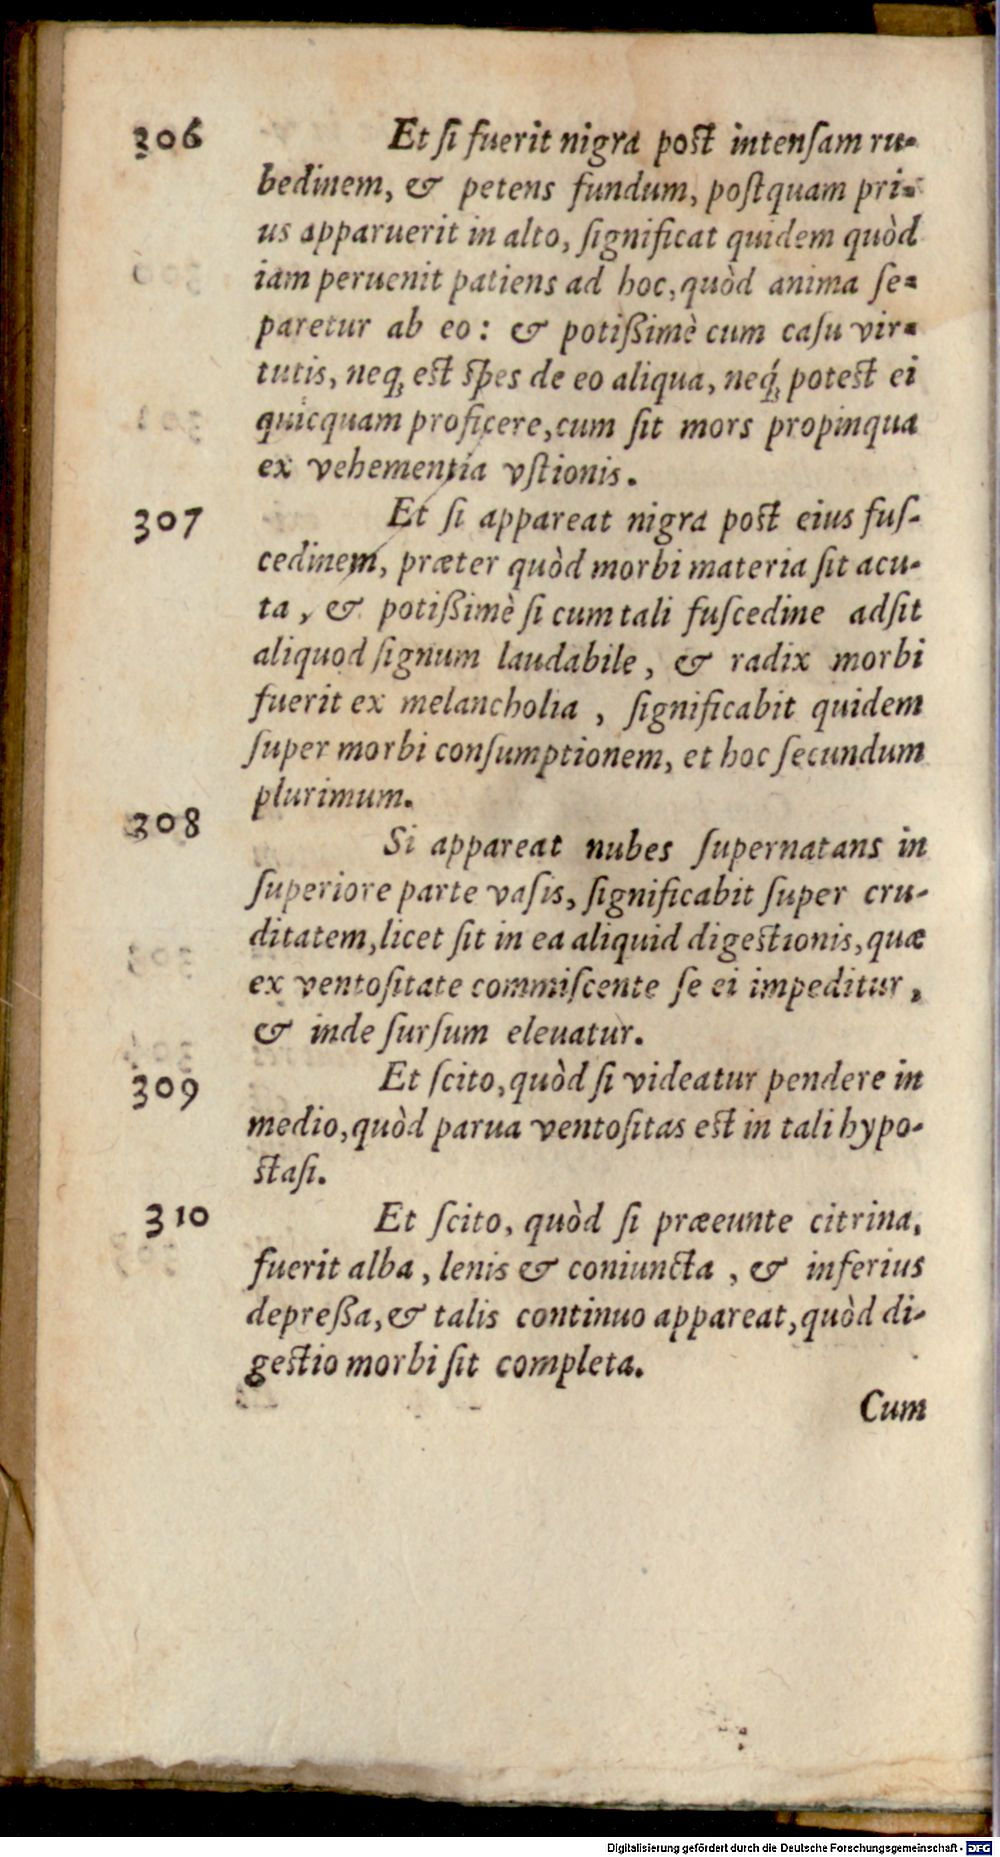 306 Et ſi fuerit nigra post intenſam ru-
bedinem, & petens fundum, poſtquam pri-
us apparuerit in alto, ſignificat quidem quòd
iam peruenit patiens ad hoc, quòd anima ſe-
paretur ab eo: & potißimè cum caſu vir-
tutis, neq; est ſpes de eo aliqua, neq́; potest ei
quicquam proficere, cum ſit mors propinqua
ex vehementia vſtionis.
307 Et ſi appareat nigra post eius fuſ-
cedinem, præter quòd morbi materia ſit acu-
ta, & potißimè ſi cum tali fuſcedine adſit
aliquod ſignum laudabile, & radix morbi
fuerit ex melancholia, ſignificabit quidem
ſuper morbi conſumptionem, et hoc ſecundum
plurimum.
308 Si appareat nubes ſupernatans in
ſuperiore parte vaſis, ſignificabit ſuper cru-
ditatem, licet ſit in ea aliquid digestionis, quæ
ex ventoſitate commiſcente ſe ei impeditur,
& inde ſurſum eleuatur.
309 Et ſcito, quòd ſi videatur pendere in
medio, quòd parua ventoſitas est in tali hypo-
staſi.
310 Et ſcito, quòd ſi præeunte citrina,
fuerit alba, lenis & coniuncta, & inferius
depreßa, & talis continuo appareat, quòd di-
gestio morbi ſit completa.
Cum
Digitalisierung gefördert durch die Deutsche Forschungsgemeinschaft - DFG